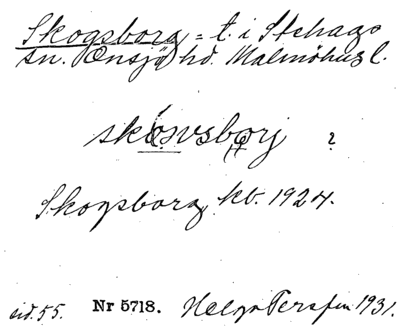 Skogsborg = t. i Stehags
sn. Onsjö hd. Malmöhus l.
?
Skogsborg kb. 1924.
sid. 55. Nr 5718. Helge Persson 1931.